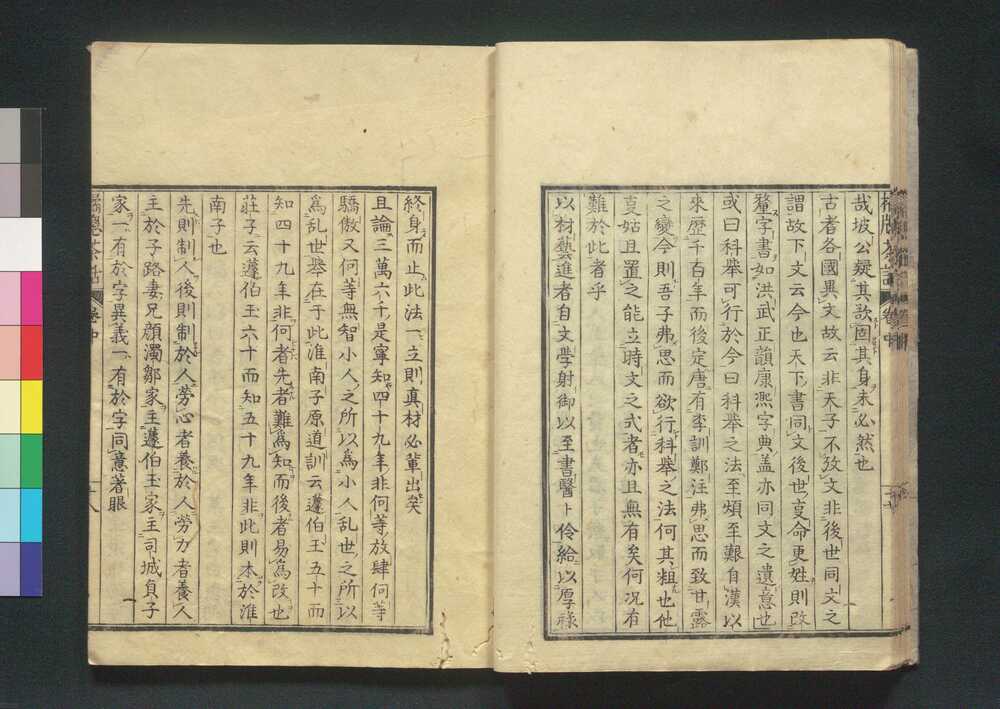 哉坡公疑其欲固其身未必然也
古者各國異文故云非天子不攷文非後世同文之
謂故下文云今也天下書同文後世亶命更姓則改
釐字書如洪武正韻康凞字典盖亦同文之遺意也
或曰科舉可行於今曰科舉之法至煩至艱自漢以
來歷千百年而後定唐有李訓鄭注弗思而致甘露
之變今則吾子弗思而欲行科舉之法何其粗也他
亶姑且置之能立時文之式者亦且無有矣何况有
難於此者乎
以材藝進者自文學射御以至書醫卜伶給以厚祿
終身而止此法一立則真材必輩出矣
且論三萬六千是寧知四十九年非何等放肆何等
驕傲又何等無智小人之所以為小人乱世之所以
為乱世舉在于此淮南子原道訓云蘧伯玉五十而
知四十九年非何者先者難為知而後者易為攻也
莊子云蘧伯玉六十而知五十九年非此則本於淮
南子也
先則制人後則制於人勞心者養於人勞力者養人
主於子路妻兄顔濁鄒家主蘧伯玉家主司城貞子
家一有於字異義一有於字同意著眼
卷中
十八